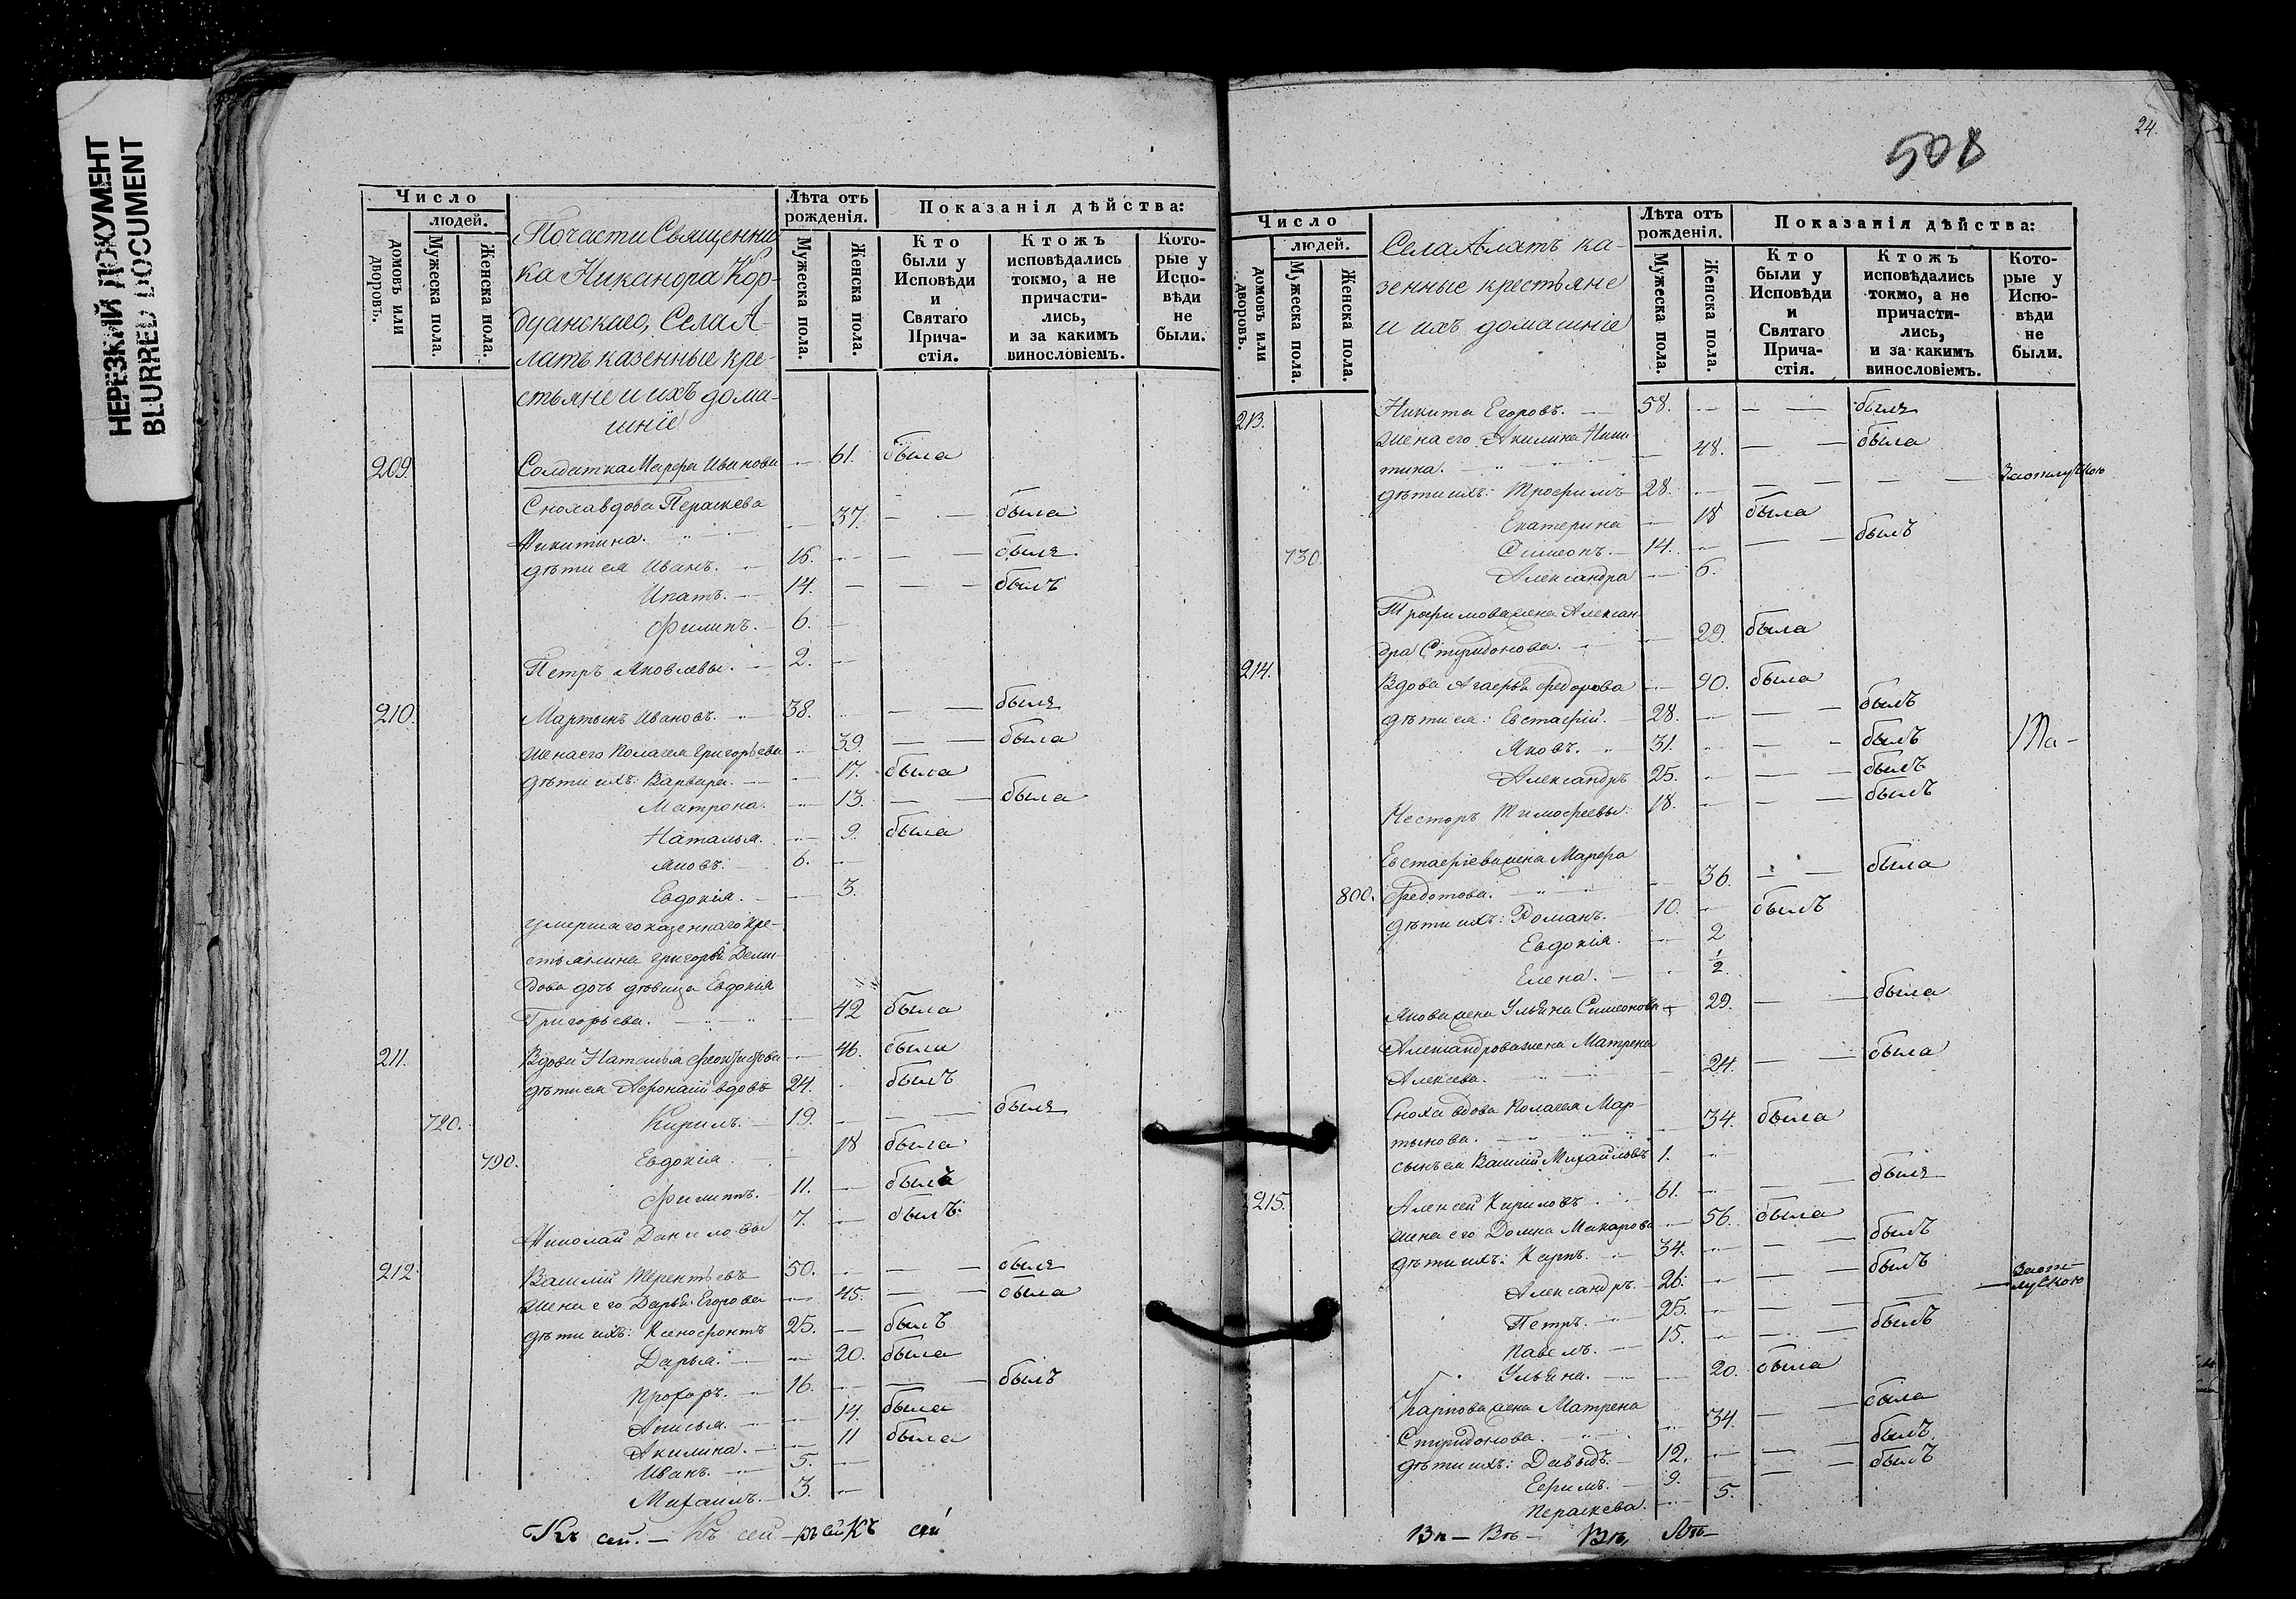 НЕРЕЗКИЙ ДОКУМЕНТ
BLURRED DOCUMENT
Число
людей.
домовъ или дворовъ.
Мужеска пола.
Женска пола.
Почасти Священни
ка Никанора Кор-
дуанскаго, Села А-
лать казенные кре-
стьяне и ихъ дома-
шніе
Лѣта отъ рожденія.
Мужеска пола.
Женска пола.
Показанія дѣйства:
Кто были у Исповѣди и Святаго Прича-стія.
Ктожъ исповѣдались токмо, а не причасти-лись, и за какимъ винословіемъ.
Кото-рые у Испо-вѣди не были.
209. Солдатка Марфа Иванова — 61. была
Сноха вдова Параскева
Никитина. — 37. — — была
дѣти ея Иванъ. — 16. — — — былъ
Ипатъ. — 14. — — — былъ
Филипъ. — 6. —
Петръ Яковлевы. — 2. —
210. Мартынъ Ивановъ. — 38. — — — былъ
жена его Пелагея Григорьева — 39. — — была
дѣти ихъ: Варвара. — — 17. была
Матрона. — 13. — — была
Наталья. — 9. была
Яковъ. 6. —
Евдокія. — 3.
умершаго казеннаго кре-
стьянина Григорья Деми-
дова дочь дѣвица Евдокія
Григорьева. — — 42 была
211. Вдова Наталья — 46. была
дѣти ея Афонасій вдовъ 24. былъ
720. Кирилъ. — 19. — — — былъ
790. Евдокія. — 18 была
Филиппъ. — 11. — былъ
Николай Даниловы 7. — былъ
212. Василій Терентьевъ 50. — — — былъ
жена его Дарья Егорова — 45. — — была
дѣти ихъ: Ксенофонтъ 25. — былъ
Дарья. — — 20. была
Прохоръ. — 16. — — — былъ
Анисья. — — 14. была
Акилина. — — 11 была
Иванъ. — 5. —
Михаилъ. — 3. —
Къ сей. — Къ сей — къ сей Къ сей
508
24.
Число
людей.
домовъ или дворовъ.
Мужеска пола.
Женска пола.
Села Алатъ ка-
зенные крестьяне
и ихъ домашніе
Лѣта отъ рожденія.
Мужеска пола.
Женска пола.
Показанія дѣйства:
Кто были у Исповѣди и Святаго Прича-стія.
Ктожъ исповѣдались токмо, а не причасти-лись, и за какимъ винословіемъ.
Кото-рые у Испо-вѣди не были.
213. Никита Егоровъ. — 58. — — — былъ
жена его Акилина Ники-
тина. — — 48. — — была
дѣти ихъ: Трофимъ 28. — — — — — За отлучкою
Екатерина — 18 была
730. Симеонъ. — 14. — — — былъ
Александра — 6.
Трофимова жена Алексан-
дра Спиридонова. — — 29. была
214. Вдова Агафья Федорова — 90. была
дѣти ея: Евстафій. — 28. — — — былъ
Яковъ. — 31. — — — былъ
Александръ 25. — — — былъ
Несторъ Тимофеевы. 18. — — — былъ
Евстафіева жена Марфа
800. Федотова. — — 36. — — была
дѣти ихъ: Романъ. — 10. — былъ
Евдокія. — 2
Елена. — 1/2.
Якова жена Ульяна Симеонова — 29. — — была
Александрова жена Матрена
Алексева. — 24. — — была
Сноха вдова Пелагея Мар-
тынова. — — 34. была
сынъ ея Василій Михайловъ 1. —
215. Алексей Кириловъ — 61. — — — былъ
жена его Домна Макарова — 56. была
дѣти ихъ: Карпъ. — 34. — — — былъ
Александръ. — 26. — — — былъ
Петръ. — 25. — — — — — За от-
лучкою
Павелъ. — 15. — — — былъ
Ульяна. — — 20. была
Карпова жена Матрена
Спиридонова. — — 34. — — была
дѣти ихъ: Давыдъ. — 12. — — — былъ
Ефимъ. — 9. — — — былъ
Параскева. — 5.
Вп — Въ — Въ,